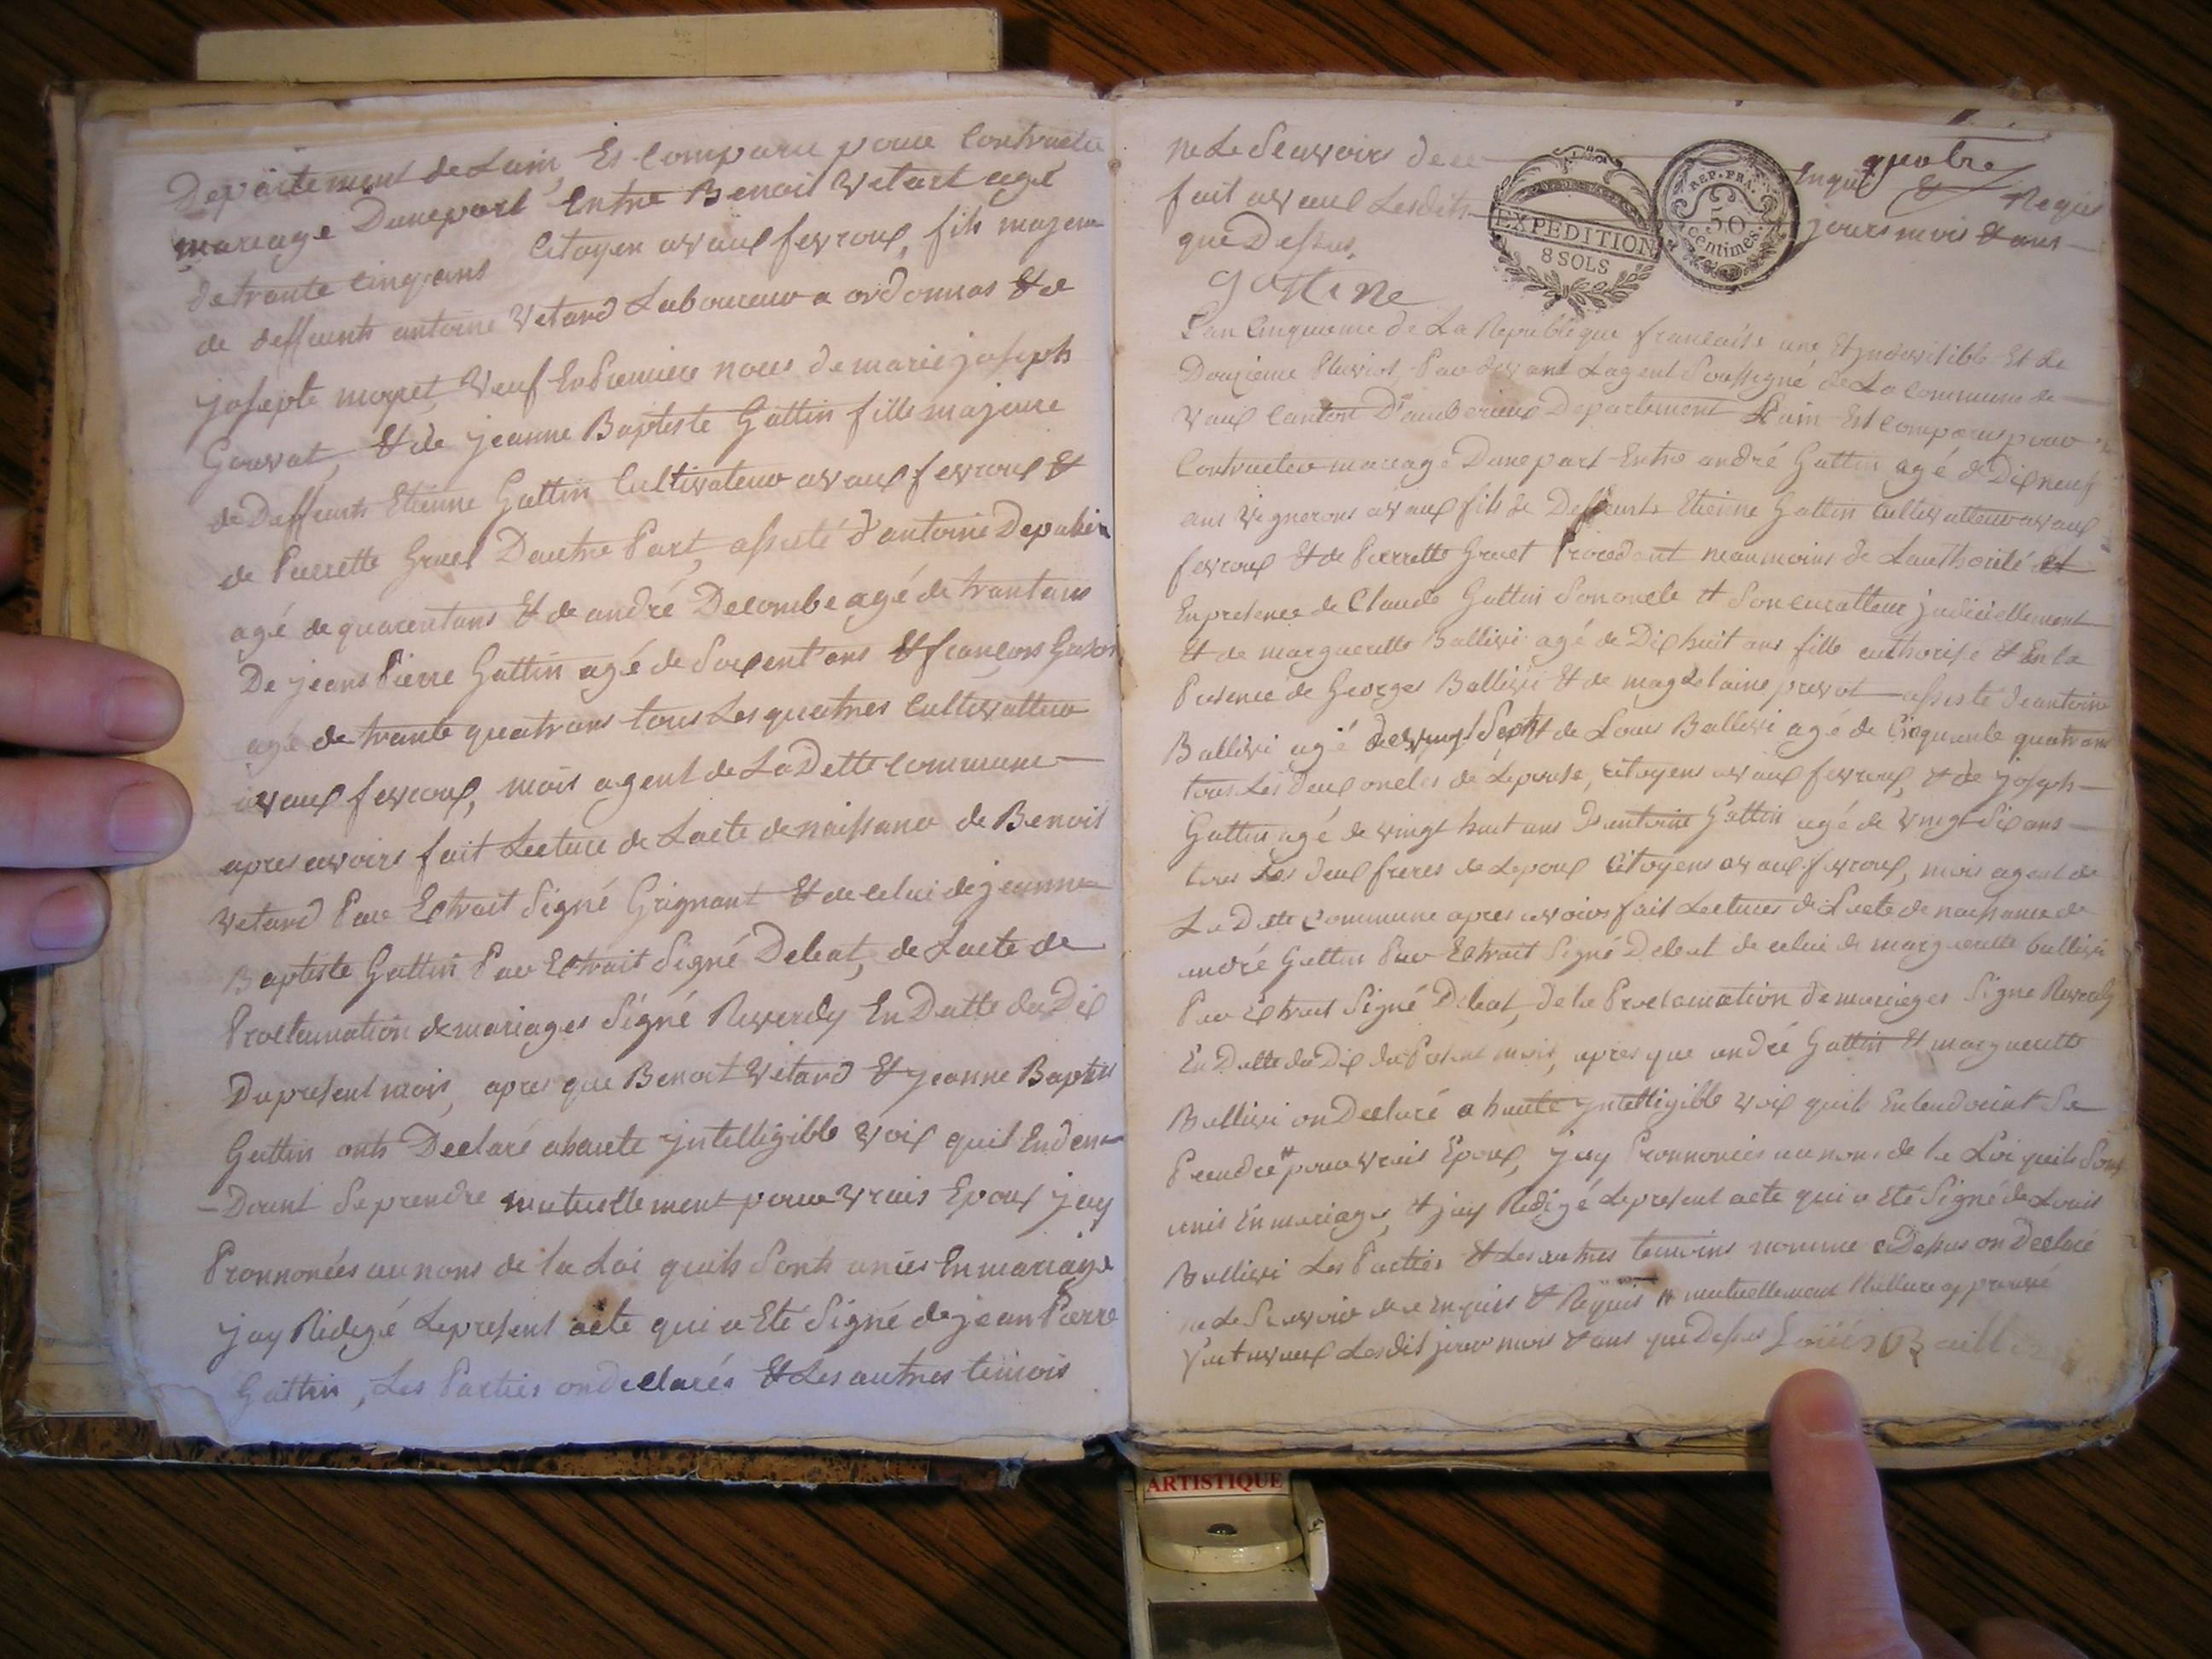 Departement de Lain, Es Comparu pour Contracter
mariage Dunepart Entre Benoit Vetard agé
de trante cinq ans Citoyen avaux fevroux, fils majeur
de deffunts antoine Vetard Laboureur a ordonnas & de
josephte moret, Veuf En Premiere noces de marie joseph
Gouvat, & de jeanne Baptiste Gattin fille majeure
de Deffunts Etienne Gattin Cultivateur avaux fevroux &
de Pierrette Gruel Dautre Part, assisté d'antoine Depahin
agé de quarentans & de andré Decombe agé de trantans
De jeans Pierre Gattin agé de Soixent'ans & francois
agé de trante quatrans tous Les quatres Cultivatteur
avaux fevroux, mois agent de LaDette commune
apres avoirs fait Lecture de Lacte de naissance de Benoit
Vetard Par Extrait Signé Grignant & de celui de jeanne
Baptiste Gattin Par Extrait Signé Debat, de Lacte de
Proclamation de mariages Signé Reverdy En Datte du Dix
Dupresent mois, apres que Benoit Vetard & jeanne Baptis
Gattin onts Declaré ahaute jntelligible voix quil Enden
-Doint Se prendre mutuellement pour vrais Epoux jay
Pronnoncés au noms de la Loi quils Sonts unies En mariage
jay Redigé Lepresent acte qui a Eté Signé de jean Pierre
Gattin, Les Parties on declarés & Les autres temois
ne Le Seavoirs dece Enquis & Requis
quatre
fait avaux Lesdits jours mois & ans
que Dessus.
EXPEDITION
8 SOLS
REP. FRA.
50
centimes.
gattine
Lan Cinquieme de La Republique francaise une Etjndivisible Et Le
Douzieme Pluvios, Par devant Lagent Soussigné de La commune de
Vaux Canton D'amberieux Departement Lain Est comparus pour
Contracter mariage Dune part Entre andré Gattin agé de Dix neuf
ans Vignerons avaux fils de Deffunts Etienne Gattin Cultivatteur avaux
fevroux & de Pierrette Gruet Procedant neanmoins de Lauthorité et
En presence de Claude Gattin Son oncle & Son curatteur judiciellement
& de marguerette Ballivi agé de Dix huit ans fille authorise & En la
Presence de Georges Ballivi & de magdelaine prevot assisté deantoine
Ballivi agé de vingt Sept & de Louis Ballivi agé de Cinquente quatrans
tous Les Deux oncles de Lepouse, Citoyens avaux fevroux, & de joseph
Gattin agé de vingt huit ans D'antoine Gattin agé de vingt Six ans
tous Les deux freres de Lepoux Citoyens avaux fevroux, mois agent de
La Dette Commune apres avoirs fait Lectures de Lacte de naissance de
andré Gattin Par Extrait Signé Debat de celui de marguerette ballivi
Par Extrait Signé Debat, de la Proclamation de mariages Signe Reverdy
En Datte du Dix du Present mois, apres que andré Gattin & marguerette
Ballivi on Declaré a haute jntelligible voix quils Entendoint Se
Prendre # pour vrais Epoux, jay Pronnonciés au noms de la Loi quils Sont
unis En mariages, & jay Redigé Lepresent acte qui a Eté Signé de Louis
Ballivi Les Parties & Les autres temoins nomme ciDessus on Declaré
ne Le Scavoir de ce Enquis & Requis # mutuellement approuvé
fait avaux Lesdit jour mois & ans que Dessus Louis
ARTISTIQUE